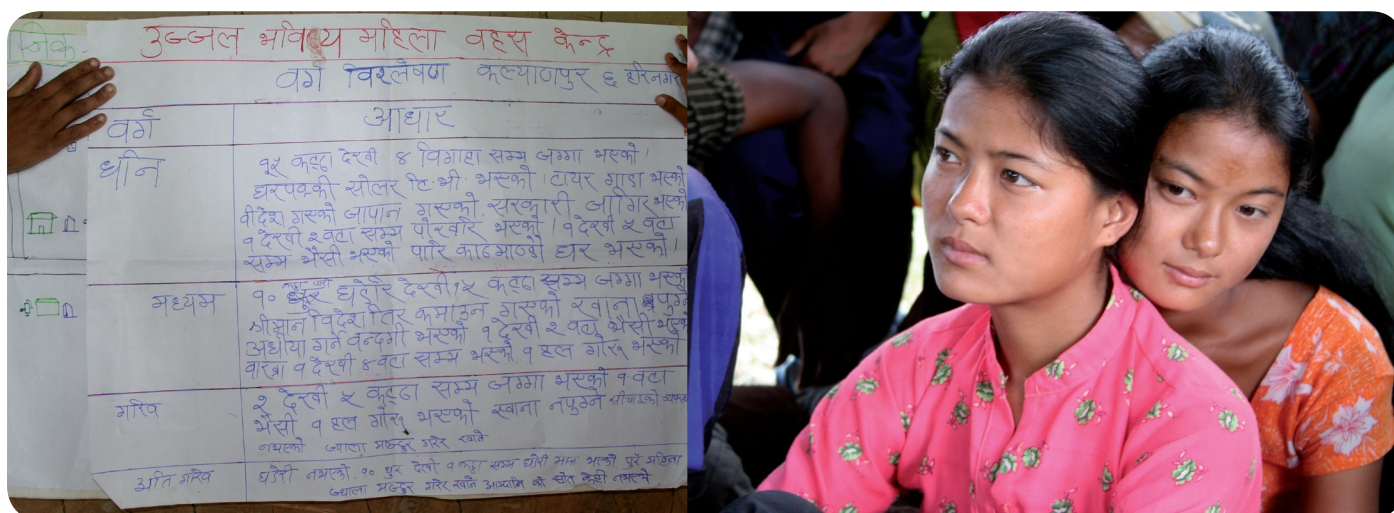 उज्जल भविष्य महिला वहस केन्द्र
वर्ग विश्लेषण कल्याणपुर ६ हरिनगर
वर्ग आधार
धनि
१५ कट्ठा देखी ४ विगाहा सम्म जग्गा भएको।
घरपक्की सोलर टि.भी. भएको। टायर गाडा भएको
वीदेश गएको जापान गएको. सरकारी जागिर भएको
१ देखी २ वटा सम्म पोखरि भएको। १ देखी ५ वटा
सम्म भैसी भएको पारि काठमाण्डौ घर भएको।
मध्यम
१० धुर घडेरि देखी १५ कट्ठा सम्म जग्गा भएको
श्रीमान विदेश तिर कमाउन गएको खाना पुग्ने
अधीया गर्ने वन्दगी भएको १ देखी २ वटा भैसी भएको
वाख्रा १ देखी ४ वटा सम्म भएको १ हल गोरु भएको
गरिव
२ देखी ५ कट्ठा सम्म जग्गा भएको १ वटा
भैसी १ हल गोरु भएको खाना नपुग्ने सीचाइको
नभएको ज्याला मजदुर गरेर खाने
अति गरिव
घडेरी नभएको. १० धुर देखी १ कट्ठा सम्म भएको पुरै
ज्याला मजदुर गरेर खाने को स्रोत केही नभएको